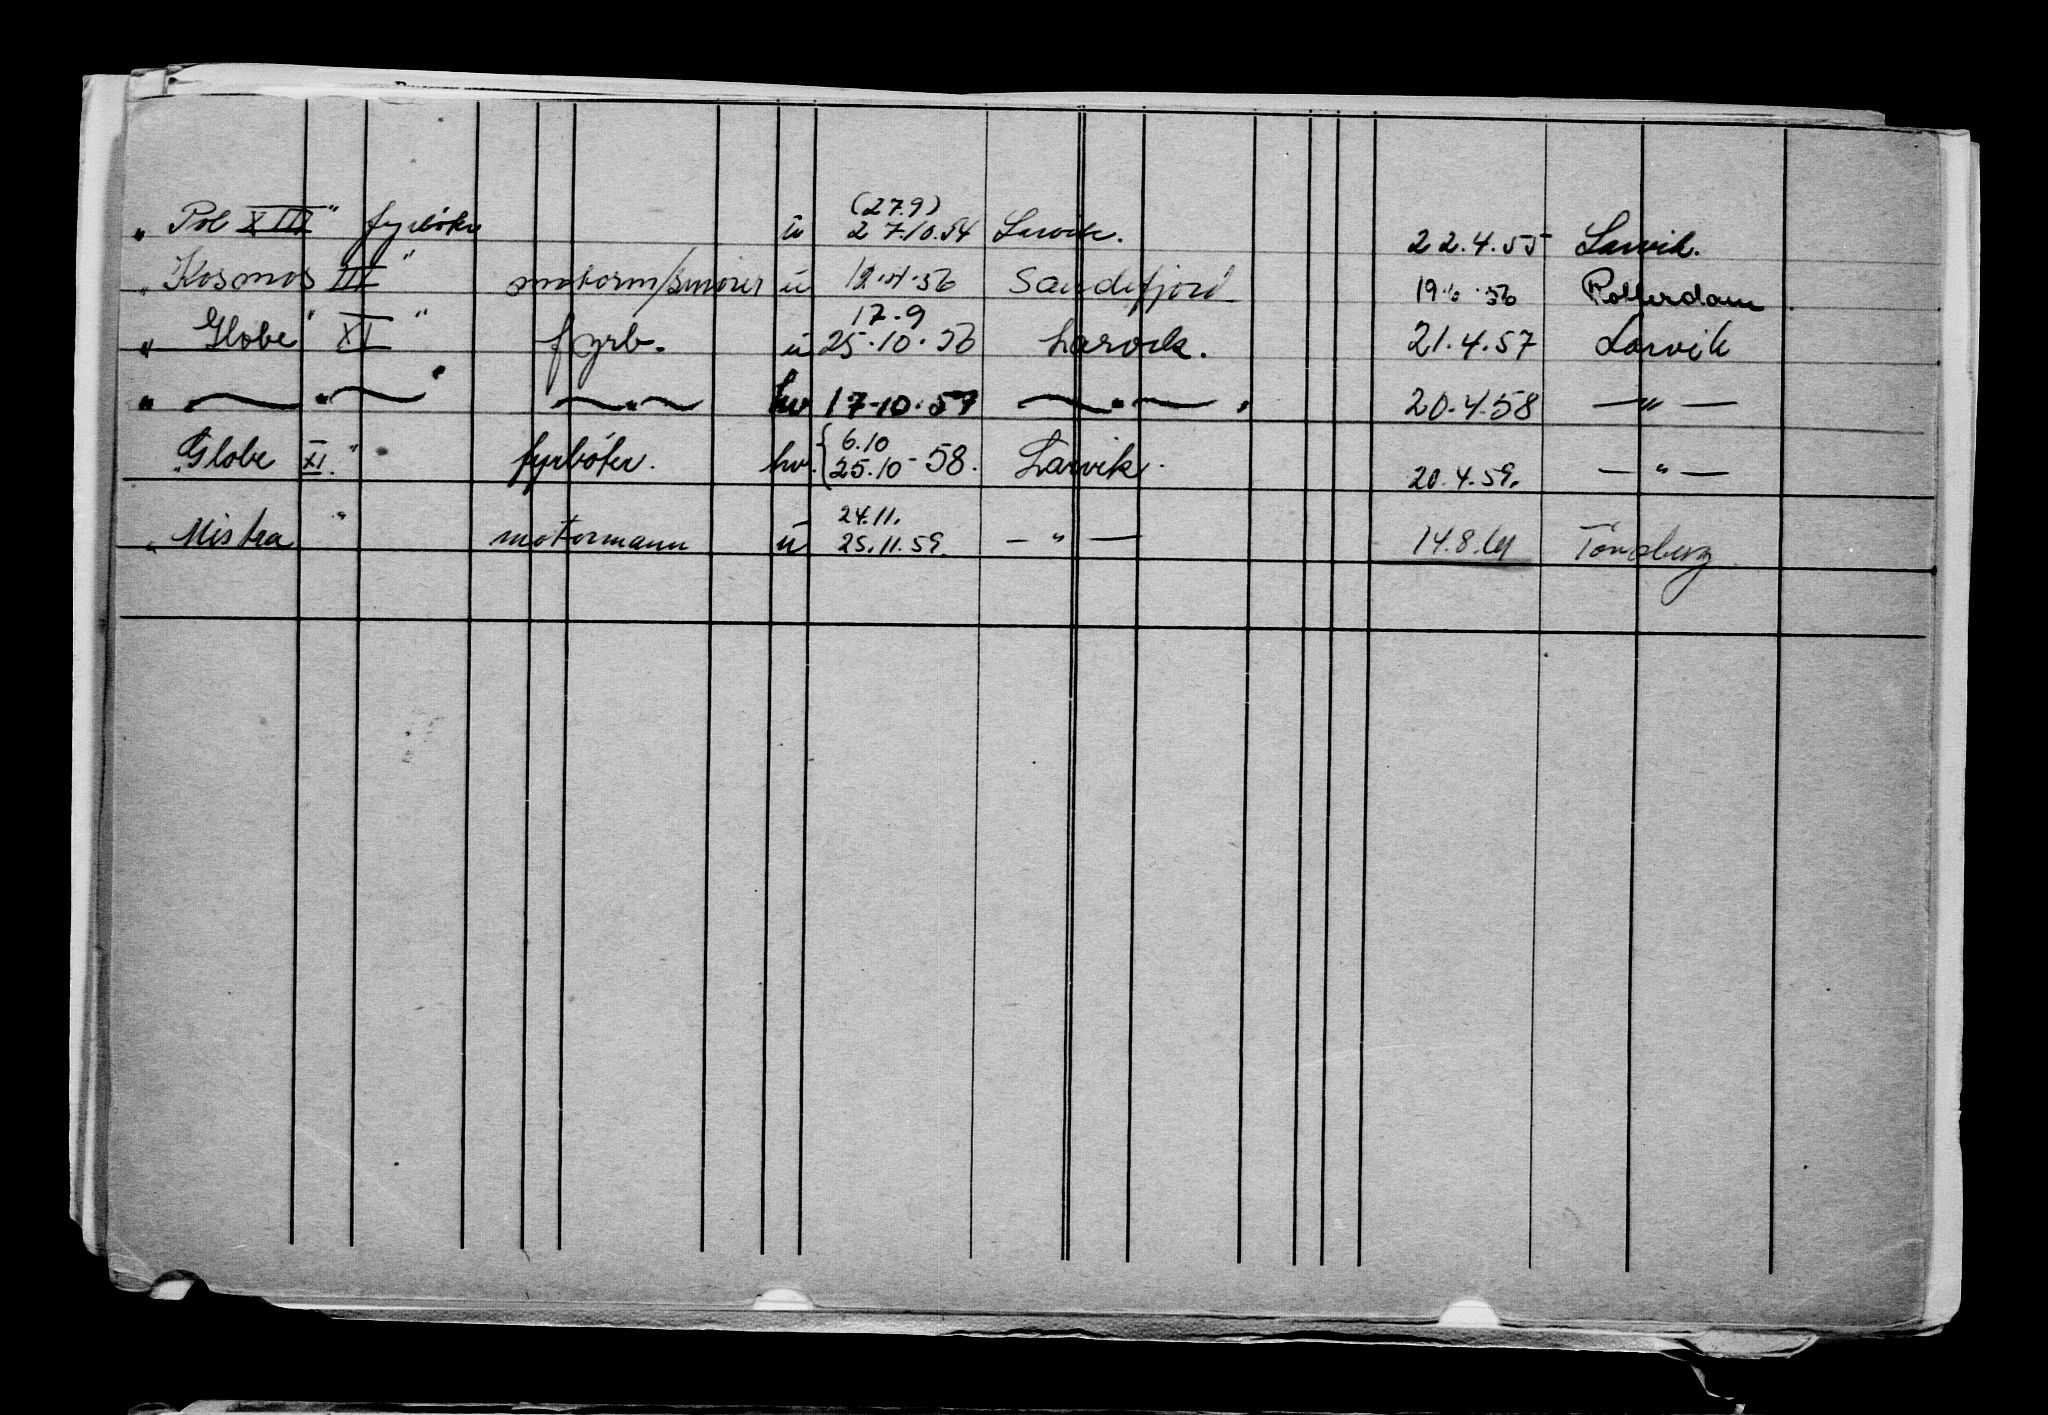 (27.9)
„Pol XIII" fyrbøter u 27.10.54 Larvik. 22.4.55 Larvik.
„Kosmos III" motorm/smører u 12.4.56 Sandefjord 19. .56 Rotterdam
17.9
„Globe" XI" fyrb. u 25.10.56 Larvik. 21.4.57 Larvik
" — " — " — " — hv 17.10.57 — " — . 20.4.58 — " —
6.10
„Globe XI." fyrbøter. hv. 25.10-58. Larvik. 20.4.59. — " —
24.11.
„Mistra" motormann u 25.11.59. — " — 14.8.61 Tønsberg